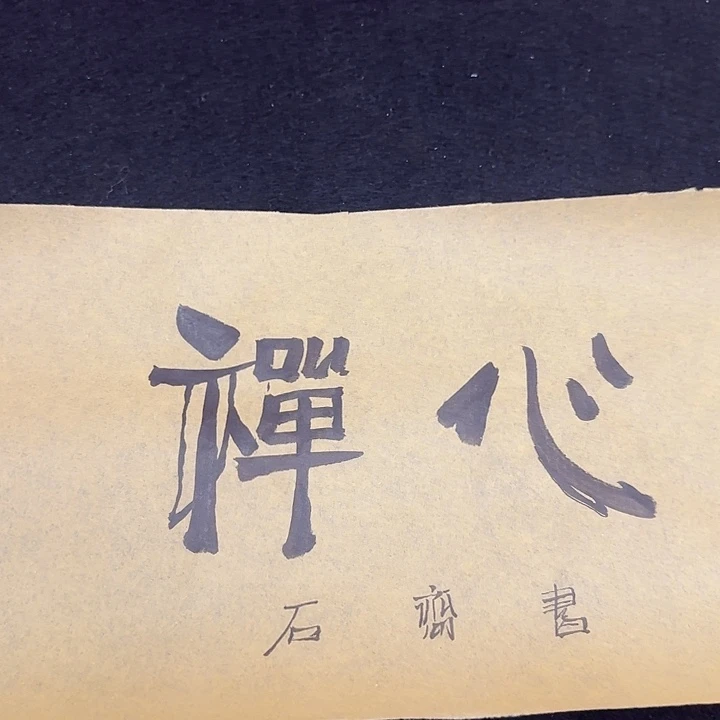 禪心
石齋書